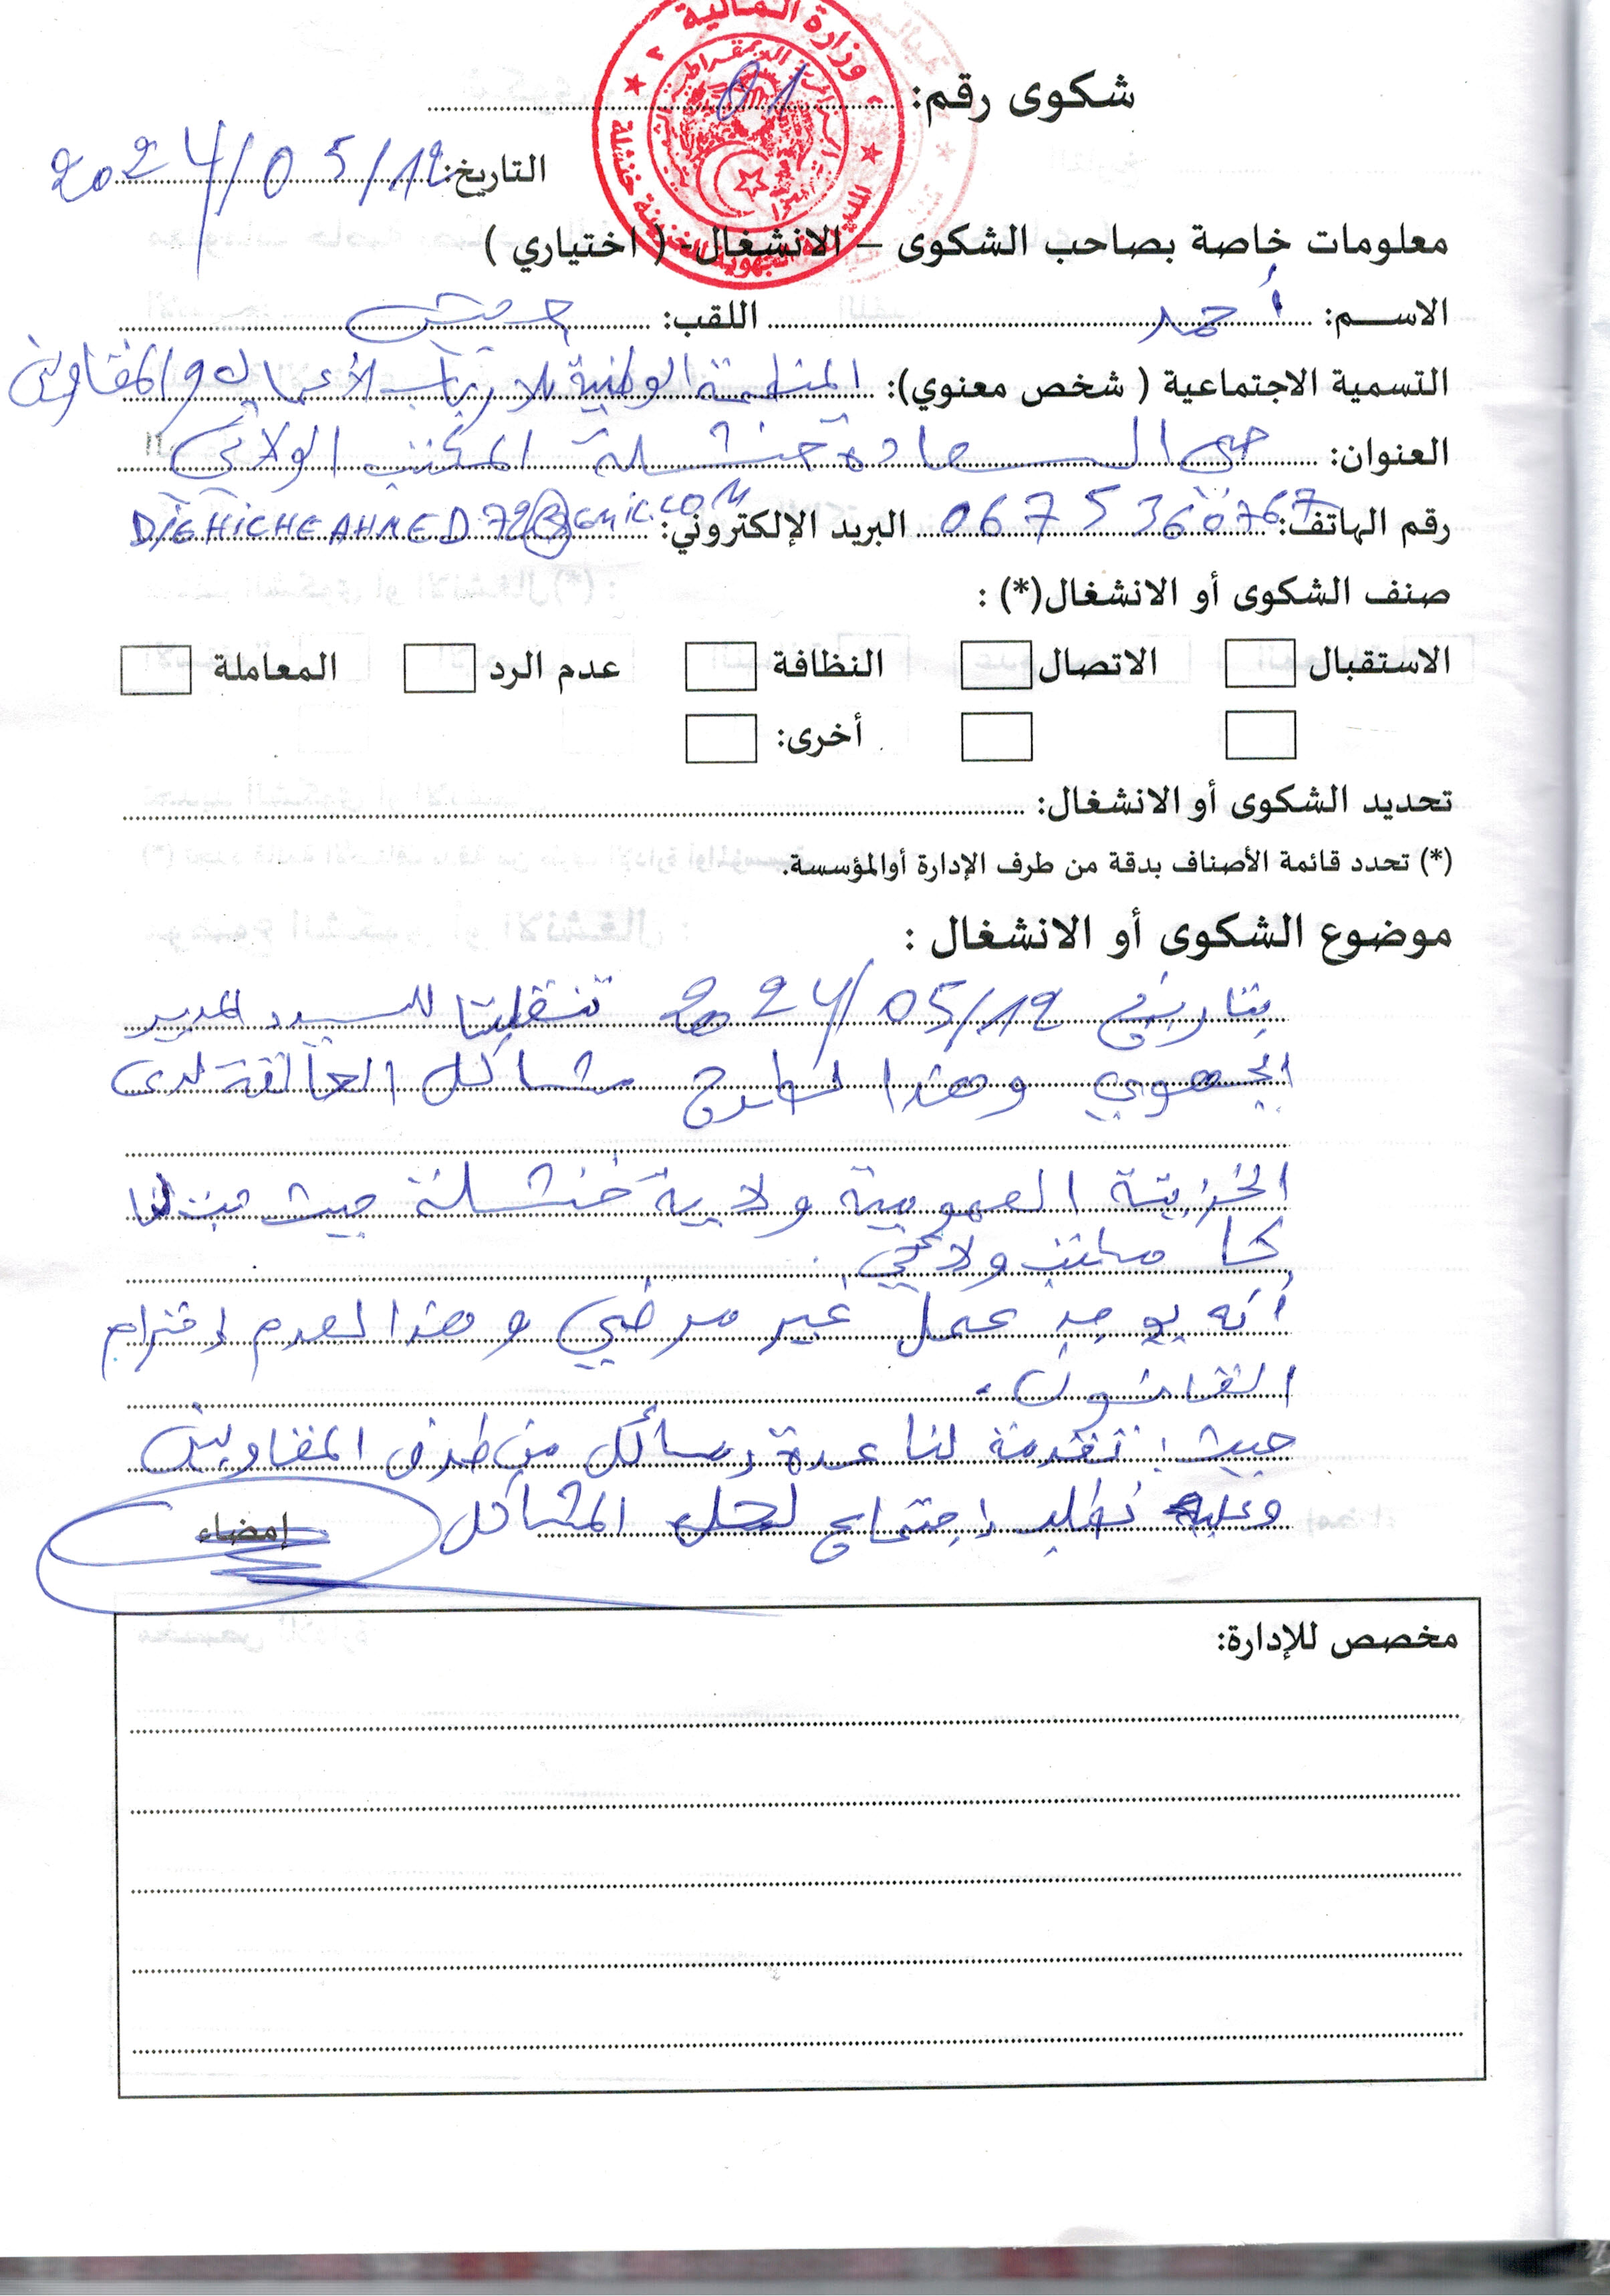 وزارة المالية
شكوى رقم: 01
التاريخ: 2024/05/12
معلومات خاصة بصاحب الشكوى – الانشغال- ( اختياري )
الاسـم: أحمد اللقب: جحيش
التسمية الاجتماعية ( شخص معنوي): المنظمة الوطنية للارباب الأعمال و المقاولين
العنوان: حي السعادة خنشلة المكتب الولائي
رقم الهاتف: 0675360767 البريد الإلكتروني: DJEHICHEAHMED72@GMIL.COM
صنف الشكوى أو الانشغال(*) :
الاستقبال الاتصال النظافة عدم الرد المعاملة
أخرى:
تحديد الشكوى أو الانشغال:
(*) تحدد قائمة الأصناف بدقة من طرف الإدارة أوالمؤسسة.
موضوع الشكوى أو الانشغال :
بتاريخ 2024/05/12 تنقلنا للسيد المدير
الجهوي وهذا لطرح مشاكل العالقة لدى
الخزينة العمومية ولاية خنشلة حيث
كـا مكتب ولائي
أنه يوجد عمل غير مرضي و هذا لعدم إحترام
القانون.
حيث : تقدمة لنا عدة رسائل من طرف المقاولين
وعليه نطلب إجتماع لحل المشاكل
إمضاء
مخصص للإدارة: